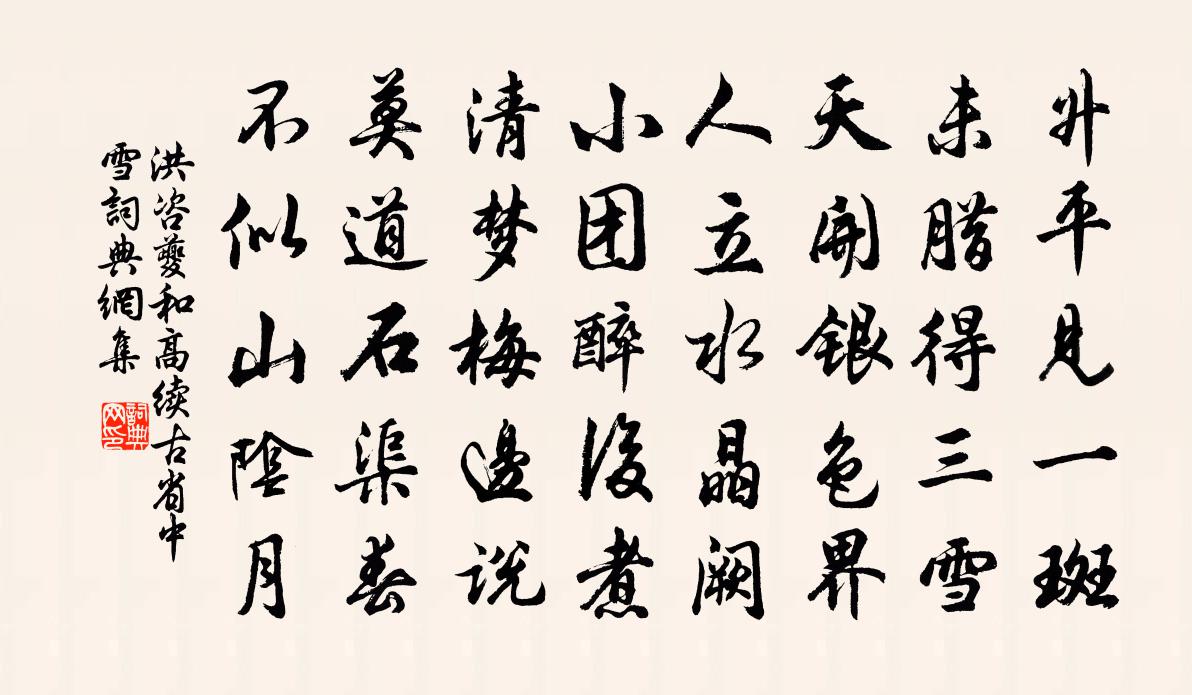 升平见一斑
未腊得三雪
天開银色界
人立水晶阙
小团醉後煮
清梦梅邊说
莫道石渠春
不似山陰月
洪咨夔和高续古省中
雪詞典網集
詞典网印